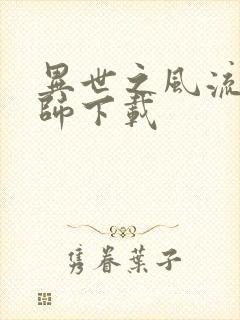 異世之風流
師下載
隽眷葉子